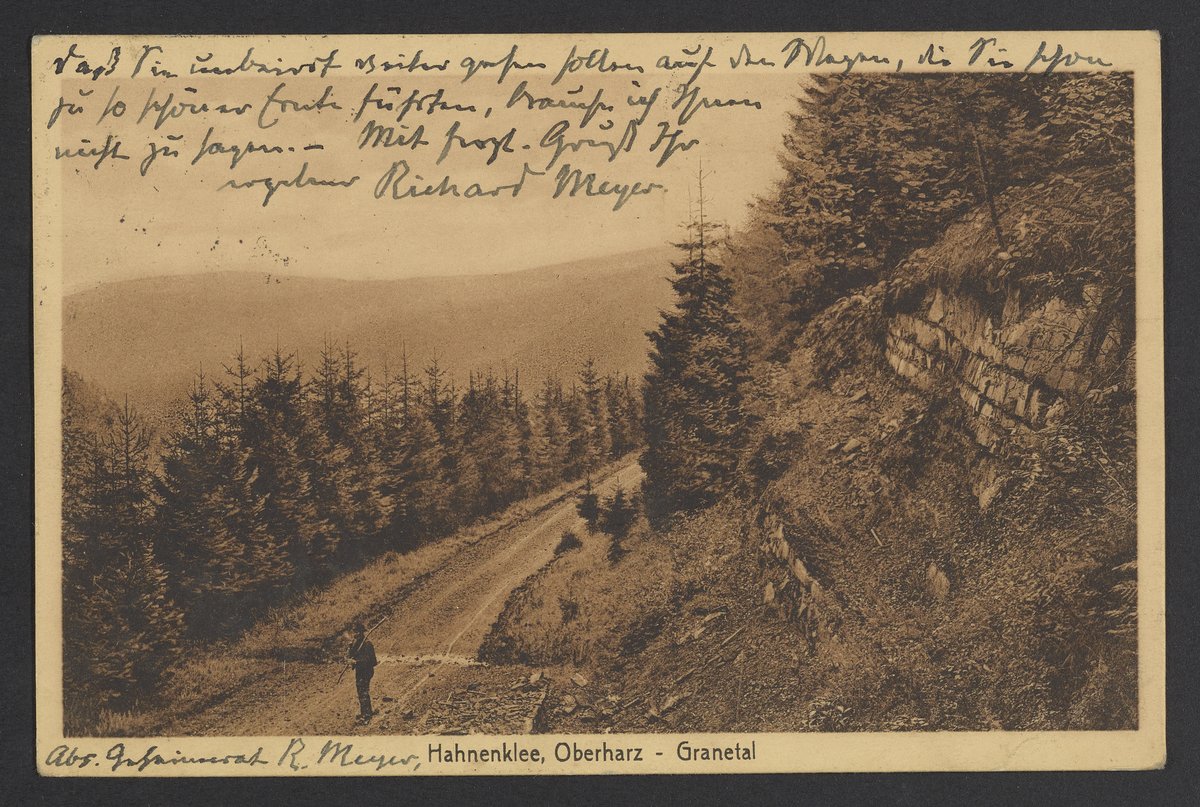 daß Sie unbeirrt weiter gehen sollen auf den Wegen, die Sie schon
zu so schöner Ernte führten, brauche ich Ihnen
nicht zu sagen. – Mit herzl. Gruß Ihr
ergebener Richard Meyer.
Abs. Geheimrat R. Meyer,
Hahnenklee, Oberharz - Granetal